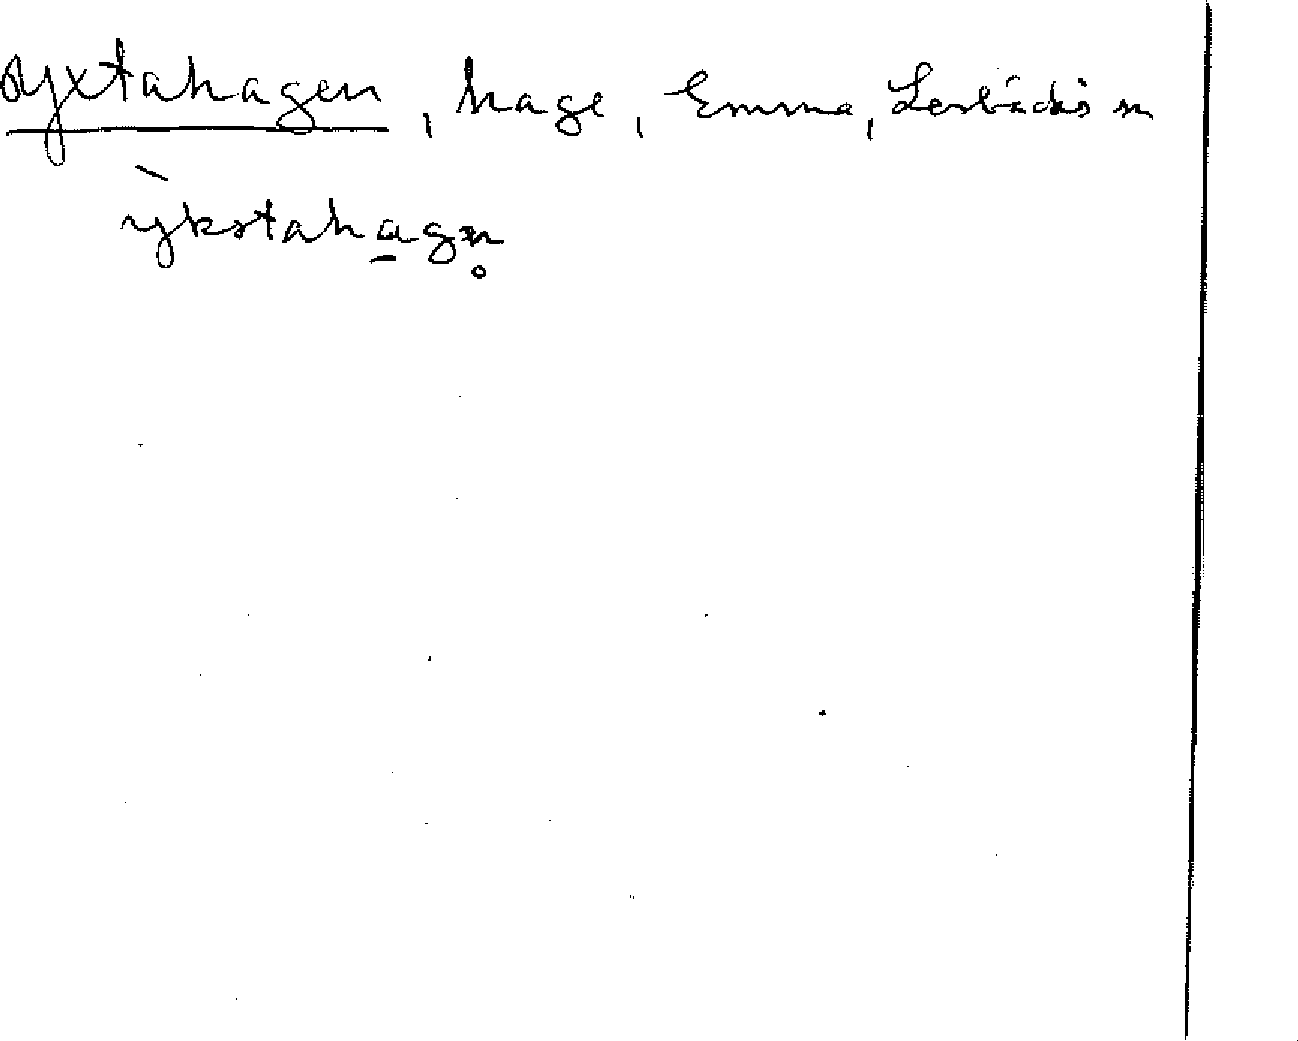 Yxtahagen, hage, Emma, Lerbäcks sn
ykstahagn